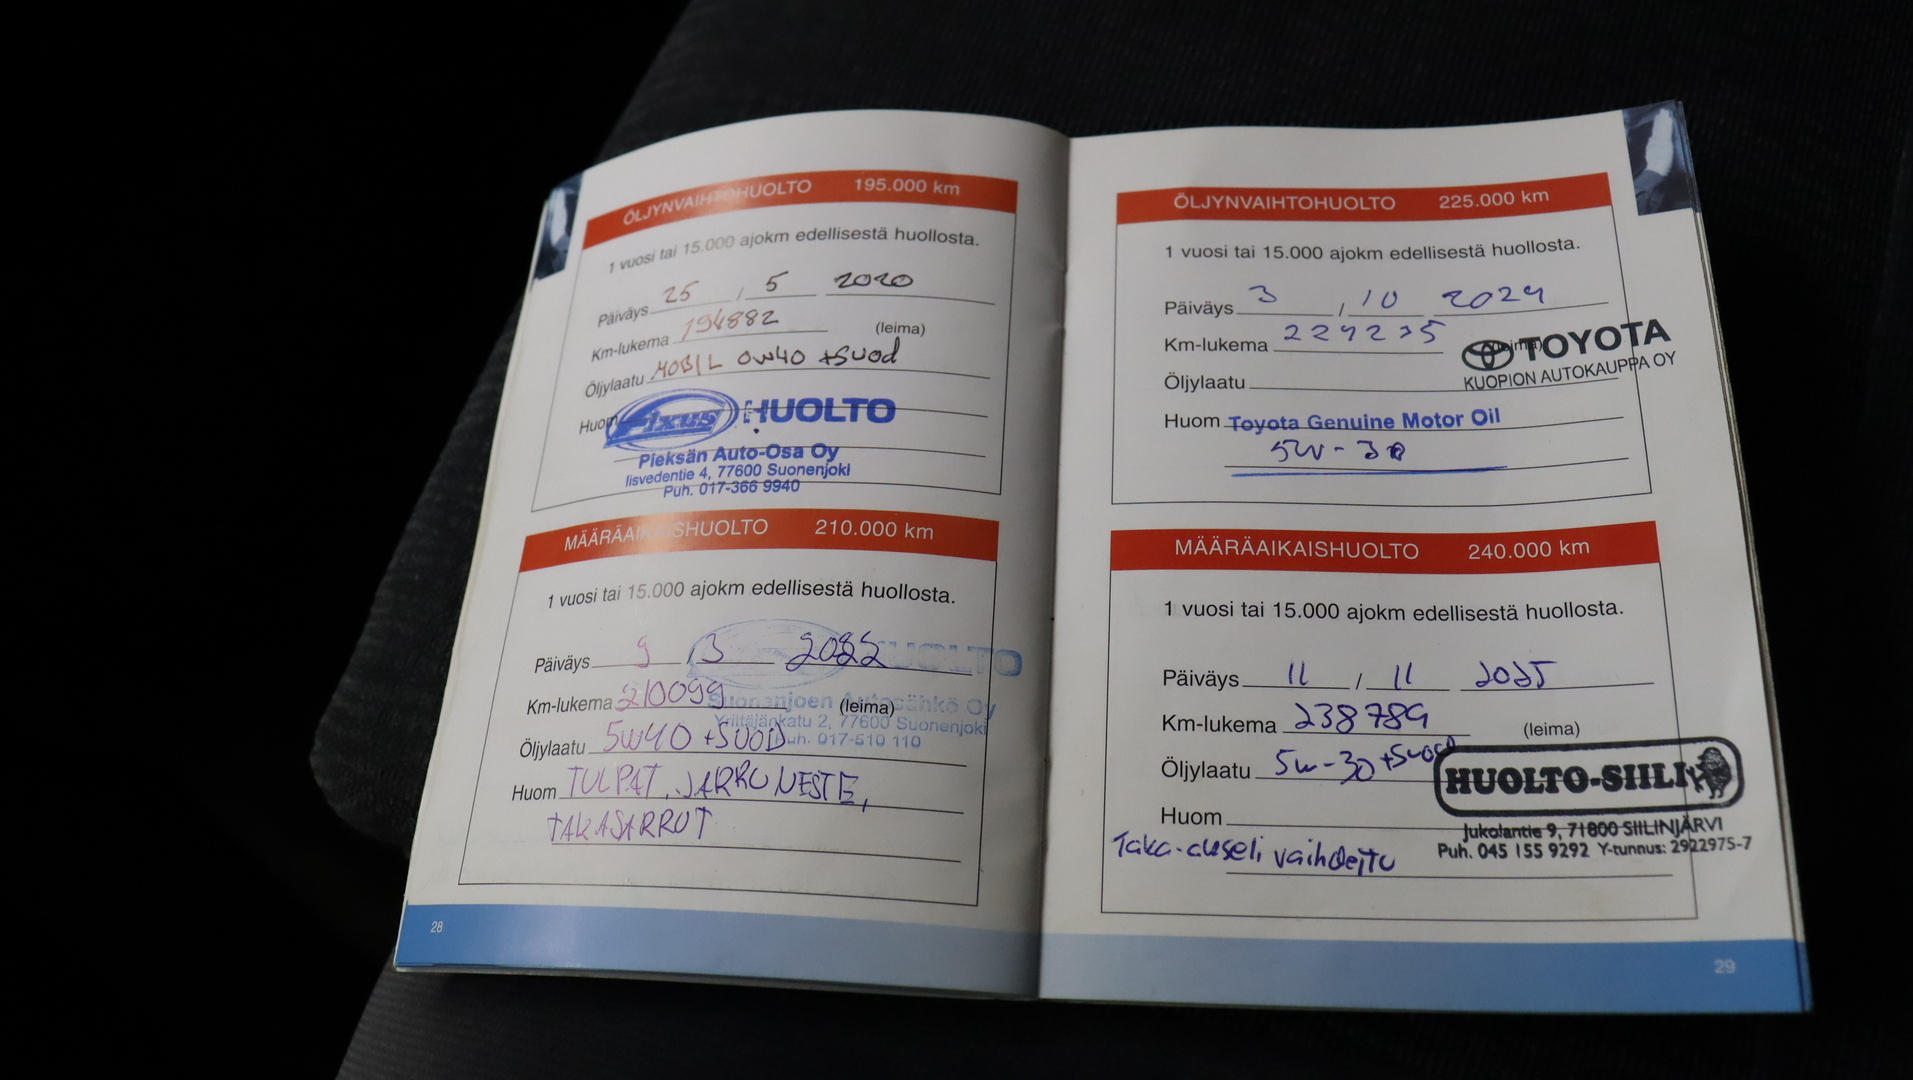 ÖLJYNVAIHTOHUOLTO 195.000 km
1 vuosi tai 15.000 ajokm edellisestä huollosta.
Päiväys 25 / 5 2020
Km-lukema 194882 (leima)
Öljylaatu MOBIL 0W40 +Suod
Huom Fixus HUOLTO
Pieksän Auto-Osa Oy
Iisvedentie 4, 77600 Suonenjoki
Puh. 017-366 9940
MÄÄRÄAIKAISHUOLTO 210.000 km
1 vuosi tai 15.000 ajokm edellisestä huollosta.
Päiväys 9 / 3 2022 HUOLTO
Km-lukema 210099 (leima)
Suonenjoen Autosähkö Oy
Yrittäjänkatu 2, 77600 Suonenjoki
Öljylaatu 5W40 +SUOD
Puh. 017-510 110
Huom TULPAT, JARRUNESTE,
TAKAJARRUT
28
ÖLJYNVAIHTOHUOLTO 225.000 km
1 vuosi tai 15.000 ajokm edellisestä huollosta.
Päiväys 3 / 10 2024
Km-lukema (leima)
TOYOTA
KUOPION AUTOKAUPPA OY
Öljylaatu
Huom Toyota Genuine Motor Oil
5W-30
MÄÄRÄAIKAISHUOLTO 240.000 km
1 vuosi tai 15.000 ajokm edellisestä huollosta.
Päiväys 11 / 11 2025
Km-lukema 238789 (leima)
Öljylaatu 5W-30 +Suod
HUOLTO-SIILI
Huom
Jukolantie 9, 71800 SIILINJÄRVI
Puh. 045 155 9292 Y-tunnus: 2922975-7
Taka-akseli vaihdettu
29